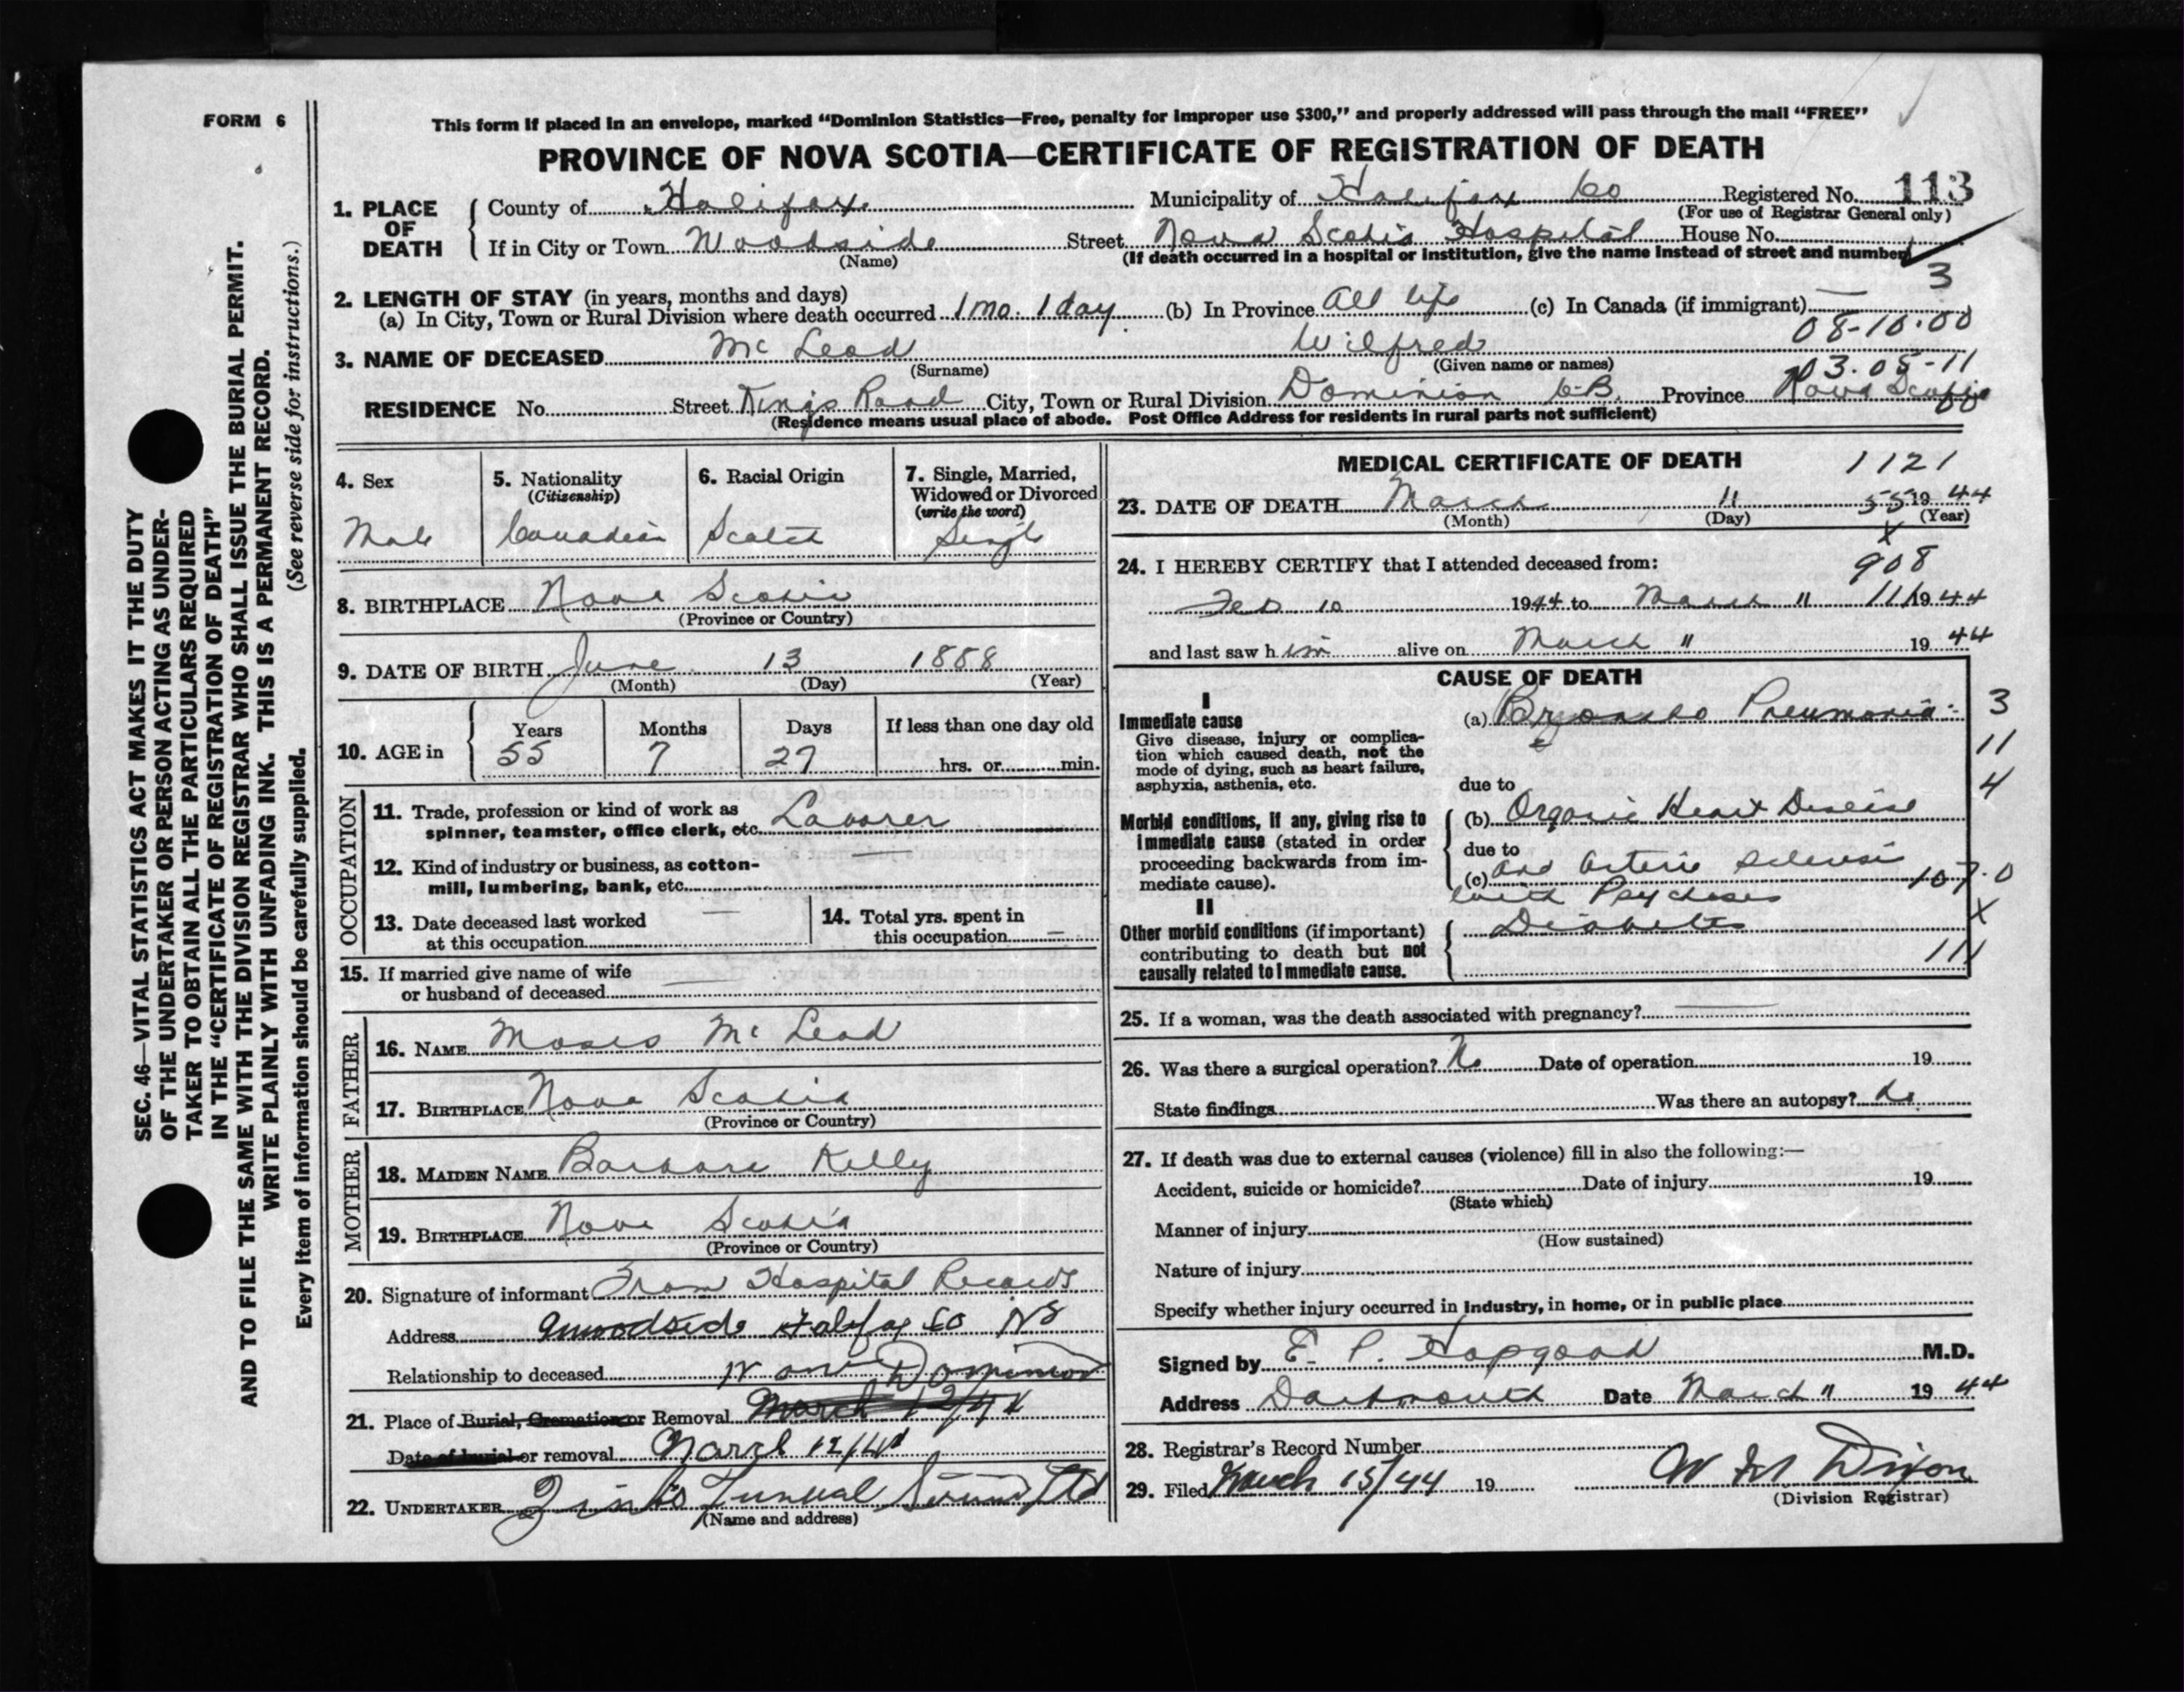 FORM 6
This form if placed in an envelope, marked “Dominion Statistics—Free, penalty for improper use $300,” and properly addressed will pass through the mail “FREE”
PROVINCE OF NOVA SCOTIA—CERTIFICATE OF REGISTRATION OF DEATH
1. PLACE OF DEATH
County of Halifax Municipality of Halifax Co Registered No. 113
(For use of Registrar General only)
If in City or Town Woodside Street Nova Scotia Hospital House No.
(Name) (If death occurred in a hospital or institution, give the name instead of street and number)
3
2. LENGTH OF STAY (in years, months and days)
(a) In City, Town or Rural Division where death occurred 1 mo. 1 day (b) In Province All life (c) In Canada (if immigrant) —
08-10.00
3. NAME OF DECEASED Mc Leod Wilfred
(Surname) (Given name or names)
03.05-11
RESIDENCE No. Street Kings Road City, Town or Rural Division Dominion C.B. Province Nova Scotia
(Residence means usual place of abode. Post Office Address for residents in rural parts not sufficient)
4. Sex
Male
5. Nationality
(Citizenship)
Canadian
6. Racial Origin
Scotch
7. Single, Married, Widowed or Divorced
(write the word)
Single
8. BIRTHPLACE Nova Scotia
(Province or Country)
9. DATE OF BIRTH June 13 1888
(Month) (Day) (Year)
10. AGE in
Years Months Days If less than one day old
55 7 27 hrs. or min.
OCCUPATION
11. Trade, profession or kind of work as
spinner, teamster, office clerk, etc. Laborer
12. Kind of industry or business, as cotton-
mill, lumbering, bank, etc. —
13. Date deceased last worked
at this occupation —
14. Total yrs. spent in
this occupation —
15. If married give name of wife
or husband of deceased —
FATHER
16. NAME Moses Mc Leod
17. BIRTHPLACE Nova Scotia
(Province or Country)
MOTHER
18. MAIDEN NAME Barbara Kelly
19. BIRTHPLACE Nova Scotia
(Province or Country)
20. Signature of informant From Hospital Records
Address Halifax Co NS
Relationship to deceased
21. Place of Burial, Cremation or Removal Dominion
March 12/44
Date of burial or removal March 12/44
22. UNDERTAKER Funeral Ltd
(Name and address)
MEDICAL CERTIFICATE OF DEATH 1121
23. DATE OF DEATH March 11 55 19 44
(Month) (Day) (Year)
X
24. I HEREBY CERTIFY that I attended deceased from: 908
Feb 10 1944 to March 11 111 19 44
and last saw h im alive on March 11 19 44
CAUSE OF DEATH
I
Immediate cause
Give disease, injury or complica-
tion which caused death, not the
mode of dying, such as heart failure,
asphyxia, asthenia, etc.
(a) Broncho Pneumonia 3
11
due to 4
Morbid conditions, if any, giving rise to
immediate cause (stated in order
proceeding backwards from im-
mediate cause).
(b) Organic Heart Disease
due to
(c) and Arterio Sclerosis 107.0
with Psychoses
X
II
Other morbid conditions (if important)
contributing to death but not
causally related to immediate cause.
Diabetes
111
25. If a woman, was the death associated with pregnancy? —
26. Was there a surgical operation? No Date of operation 19
State findings Was there an autopsy? No
27. If death was due to external causes (violence) fill in also the following:—
Accident, suicide or homicide? Date of injury 19
(State which)
Manner of injury
(How sustained)
Nature of injury
Specify whether injury occurred in industry, in home, or in public place
Signed by E. P. Hopgood M.D.
Address Dartmouth Date March 11 19 44
28. Registrar's Record Number
29. Filed March 15/44 19 W M Dixon
(Division Registrar)
SEC. 46—VITAL STATISTICS ACT MAKES IT THE DUTY
OF THE UNDERTAKER OR PERSON ACTING AS UNDER-
TAKER TO OBTAIN ALL THE PARTICULARS REQUIRED
IN THE “CERTIFICATE OF REGISTRATION OF DEATH”
AND TO FILE THE SAME WITH THE DIVISION REGISTRAR WHO SHALL ISSUE THE BURIAL PERMIT.
WRITE PLAINLY WITH UNFADING INK. THIS IS A PERMANENT RECORD.
Every item of information should be carefully supplied. (See reverse side for instructions.)